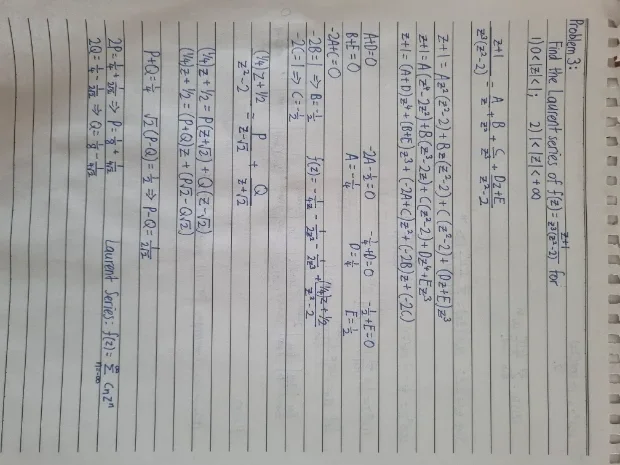 Problem 3:
Find the Laurent series of f(z) = z+1 / z³(z²-2) for
1) 0<|z|<1; 2) 1<|z|<+∞
z+1 / z³(z²-2) = A/z + B/z² + C/z³ + Dz+E / z²-2
z+1 = Az²(z²-2) + Bz(z²-2) + C(z²-2) + (Dz+E)z³
z+1 = A(z⁴-2z²) + B(z³-2z) + C(z²-2) + Dz⁴+Ez³
z+1 = (A+D)z⁴ + (B+E)z³ + (-2A+C)z² + (-2B)z + (-2C)
A+D=0 -2A-½=0 -¼+D=0 -½+E=0
B+E=0 A=-¼ D=¼ E=½
-2A+C=0
-2B=1 ⇒ B=-½ f(z) = -1/4z - 1/2z² - 1/2z³ + (1/4)z+1/2 / z²-2
-2C=1 ⇒ C=-½
(1/4)z+1/2 / z²-2 = P / z-√2 + Q / z+√2
(1/4)z+1/2 = P(z+√2) + Q(z-√2)
(1/4)z+1/2 = (P+Q)z + (P√2-Q√2)
P+Q=¼ √2(P-Q)=½ ⇒ P-Q=1/2√2
2P=¼+1/2√2 ⇒ P=⅛+1/4√2
2Q=¼-1/2√2 ⇒ Q=⅛-1/4√2 Laurent Series: f(z)= ∞ Σ n=-∞ Cnzⁿ